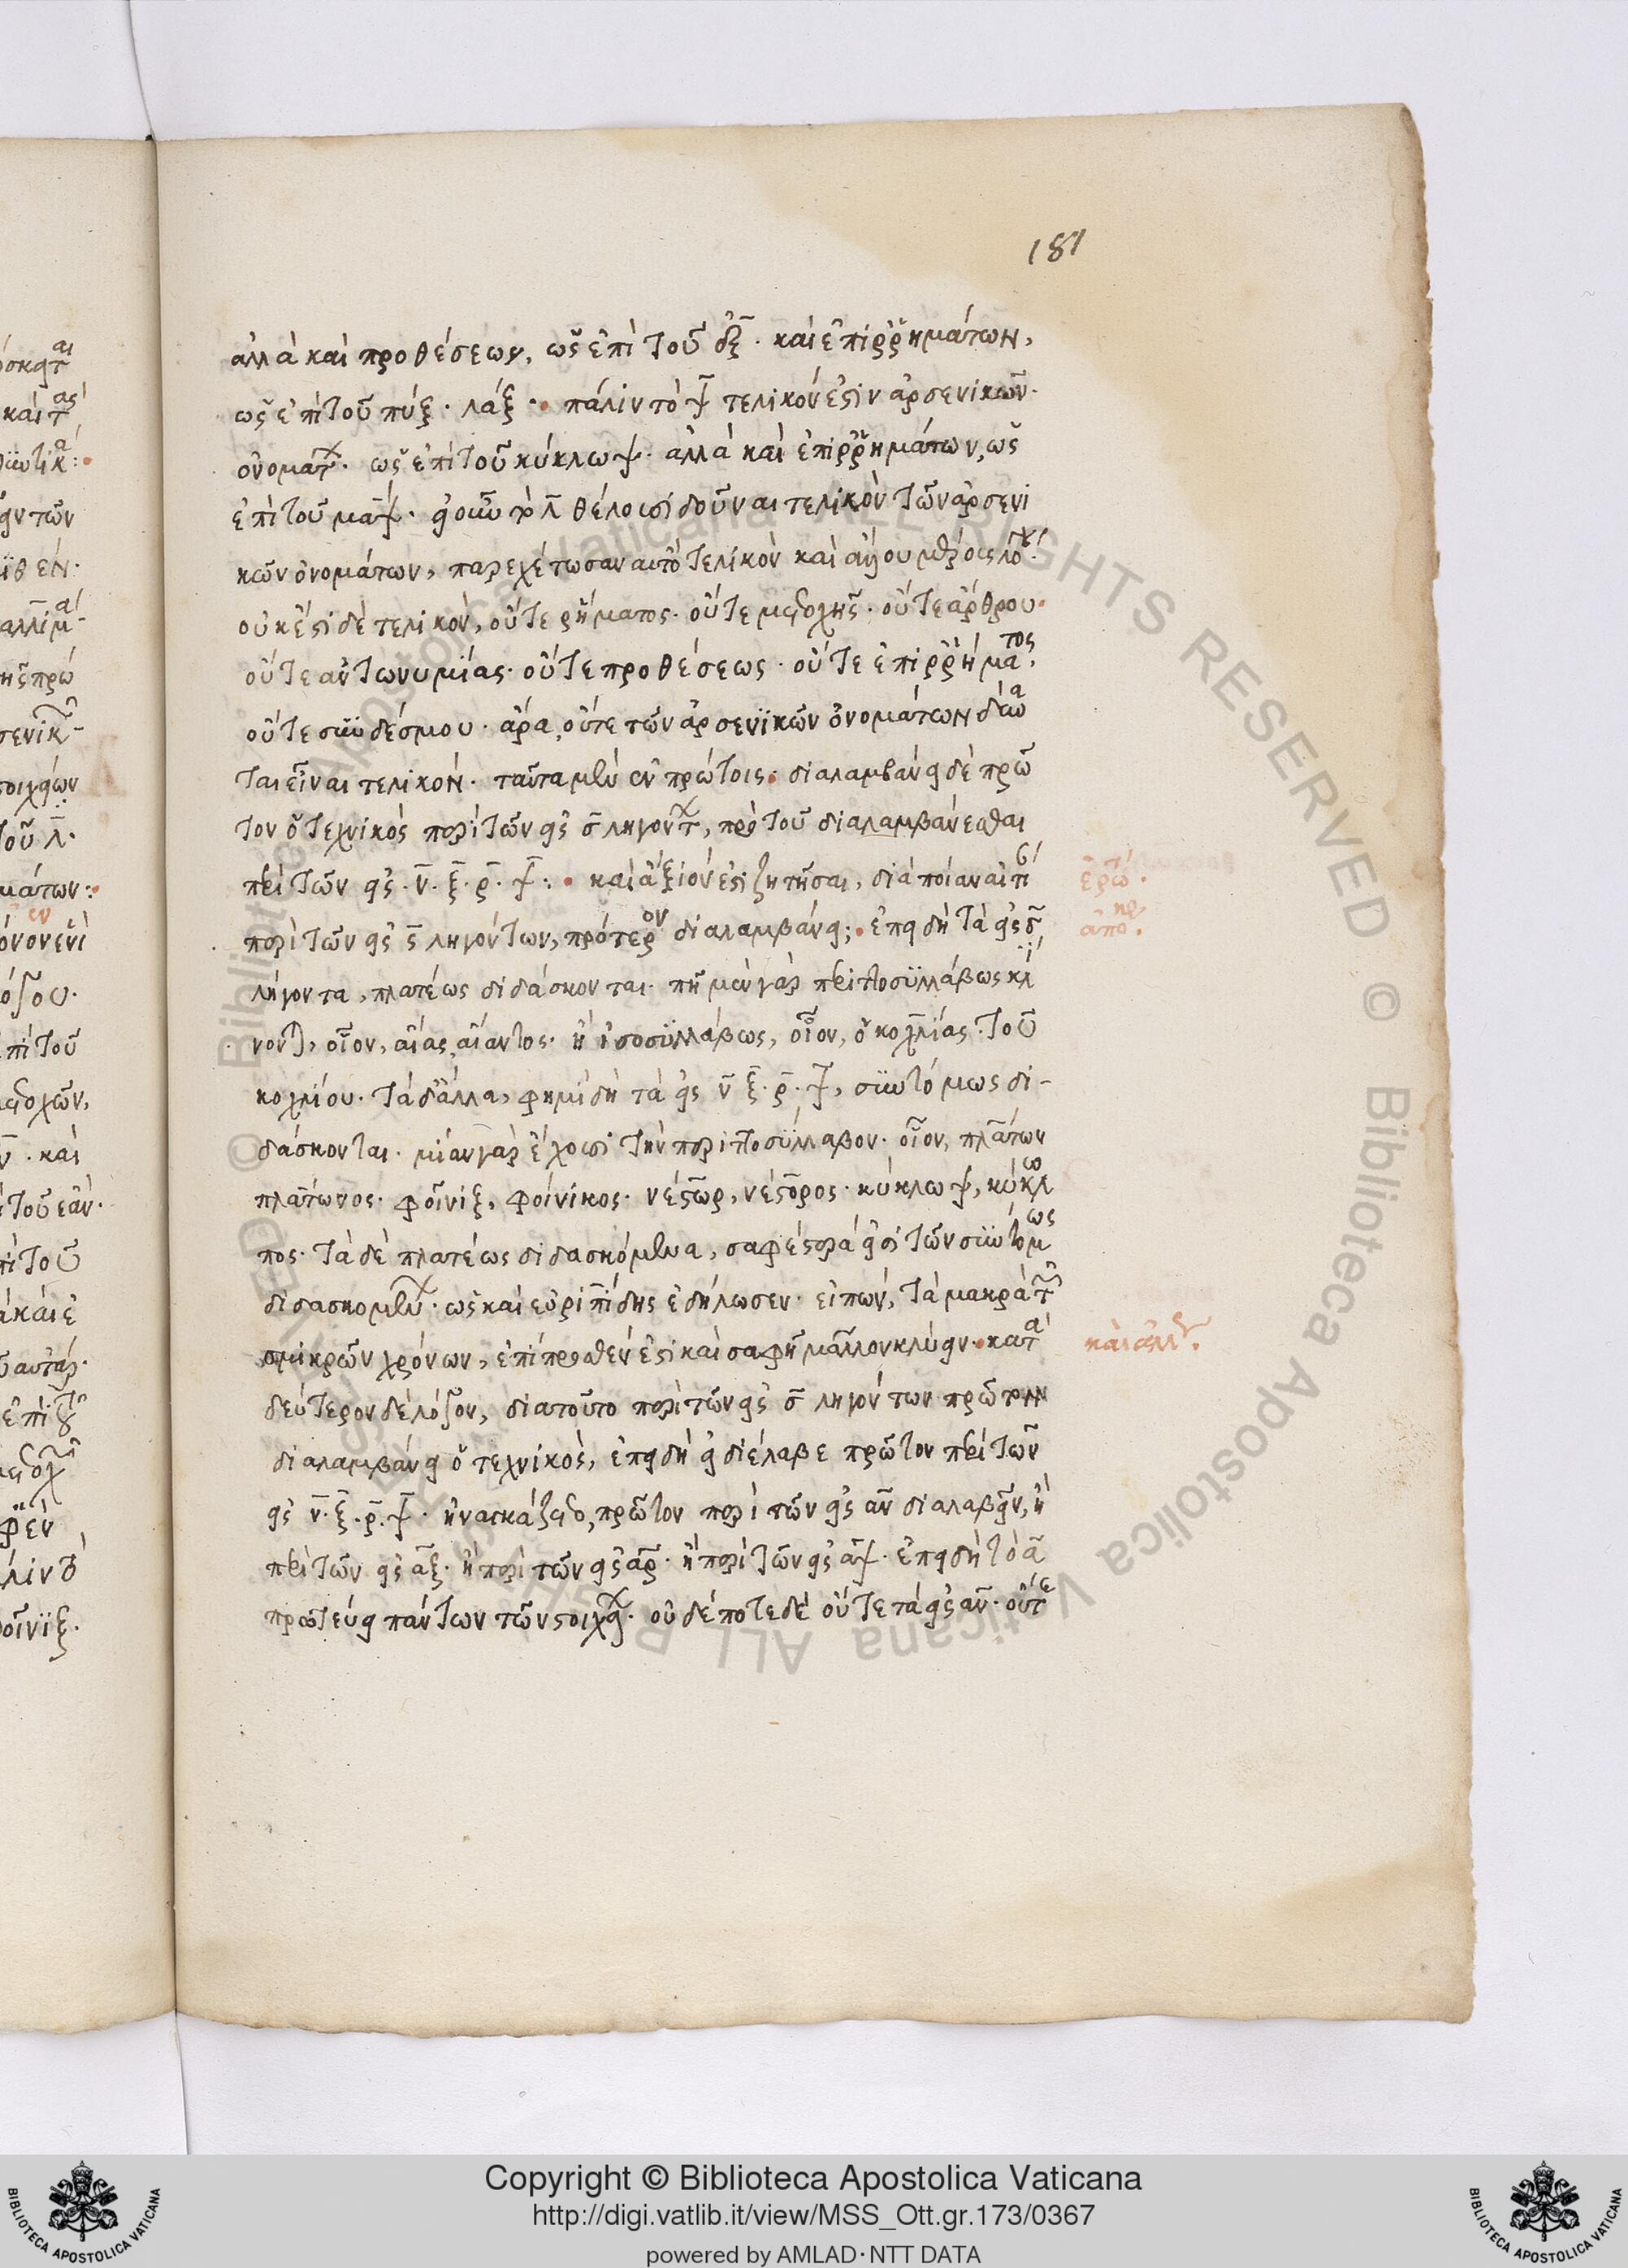 181
ἀλλὰ καὶ προθέσεως, ὡς ἐπὶ τοῦ ἐξ. καὶ ἐπιρρημάτων,
ὡς ἐπὶ τοῦ πύξ. λάξ. πάλιν τὸ ψ τελικόν ἐστιν ἀρσενικῶν
ὀνομάτ. ὡς ἐπὶ τοῦ κύκλωψ. ἀλλὰ καὶ ἐπιρρημάτων, ὡς
ἐπὶ τοῦ μάψ. εἰ οὖν τὸ λ θέλουσι δοῦναι τελικὸν τῶν ἀρσενι
κῶν ὀνομάτων, παρεχέτωσαν αὐτὸ τελικὸν καὶ ἄλλου μέρους λόγ.
οὐκ ἔστι δὲ τελικὸν, οὔτε ῥήματος. οὔτε μετοχῆς. οὔτε ἄρθρου.
οὔτε ἀντωνυμίας. οὔτε προθέσεως. οὔτε ἐπιρρήματος.
οὔτε συνδέσμου. ἄρα, οὔτε τῶν ἀρσενϊκῶν ὀνομάτων δύνα
ται εἶναι τελικόν. ταῦτα μὲν ἐν πρώτοις. διαλαμβάνει δὲ πρῶ
τον ὁ τεχνικὸς περὶ τῶν εἰς ς ληγόντ, πρὸ τοῦ διαλαμβάνεσθαι
περὶ τῶν εἰς. ν. ξ. ρ. ψ: καὶ ἄξιόν ἐστι ζητῆσαι, διὰ ποίαν αἰτί
περὶ τῶν εἰς ς ληγόντων, πρότερον διαλαμβάνει; ἐπειδὴ τὰ εἰς ς
λήγοντα, πλατέως διδάσκονται. πῆ μὲν γὰρ περιττοσυλλάβως κλί
νονται, οἷον, αἴας αἴαντος. ἢ ἰσοσυλλάβως, οἷον, ὁ κοχλίας τοῦ
κοχλίου. τὰ δ' ἄλλα, φημὶ δὴ τὰ εἰς ν ξ. ρ. ψ, συντόμως δι-
δάσκονται. μίαν γὰρ ἔχουσι τὴν περιττοσύλλαβον. οἷον, πλάτων
πλάτωνος. φοῖνιξ, φοίνικος. νέστωρ, νέστορος. κύκλωψ, κύκλω
πος. τὰ δὲ πλατέως διδασκόμενα, σαφέστερά εἰσι τῶν συντόμως
διδασκομέν. ὡς καὶ εὐριπίδης ἐδήλωσεν. εἰπὼν, τὰ μακρὰ τῶν
σμικρῶν χρόνων, ἐπίπροσθέν ἐστι καὶ σαφῆ μᾶλλον κλύειν. κατὰ
δεύτερον δὲ λόγον, διατοῦτο περὶ τῶν εἰς ς ληγόντων πρῶτον
διαλαμβάνει ὁ τεχνικὸς, ἐπειδὴ εἰ διέλαβε πρῶτον περὶ τῶν
εἰς ν. ξ. ρ. ψ. ἠναγκάζετο, πρῶτον περὶ τῶν εἰς αν διαλαβεῖν, ἢ
περὶ τῶν εἰς αξ. ἢ περὶ τῶν εἰς αρ. ἢ περὶ τῶν εἰς αψ. ἐπειδὴ τὸ α
πρωτεύει πάντων τῶν στοιχεί. οὐδέποτε δὲ οὔτε τὰ εἰς αν. οὔτε
ἐρώτ.
ἀπο.
καὶ ἄλλ.
Copyright © Biblioteca Apostolica Vaticana
http://digi.vatlib.it/view/MSS_Ott.gr.173/0367
powered by AMLAD·NTT DATA